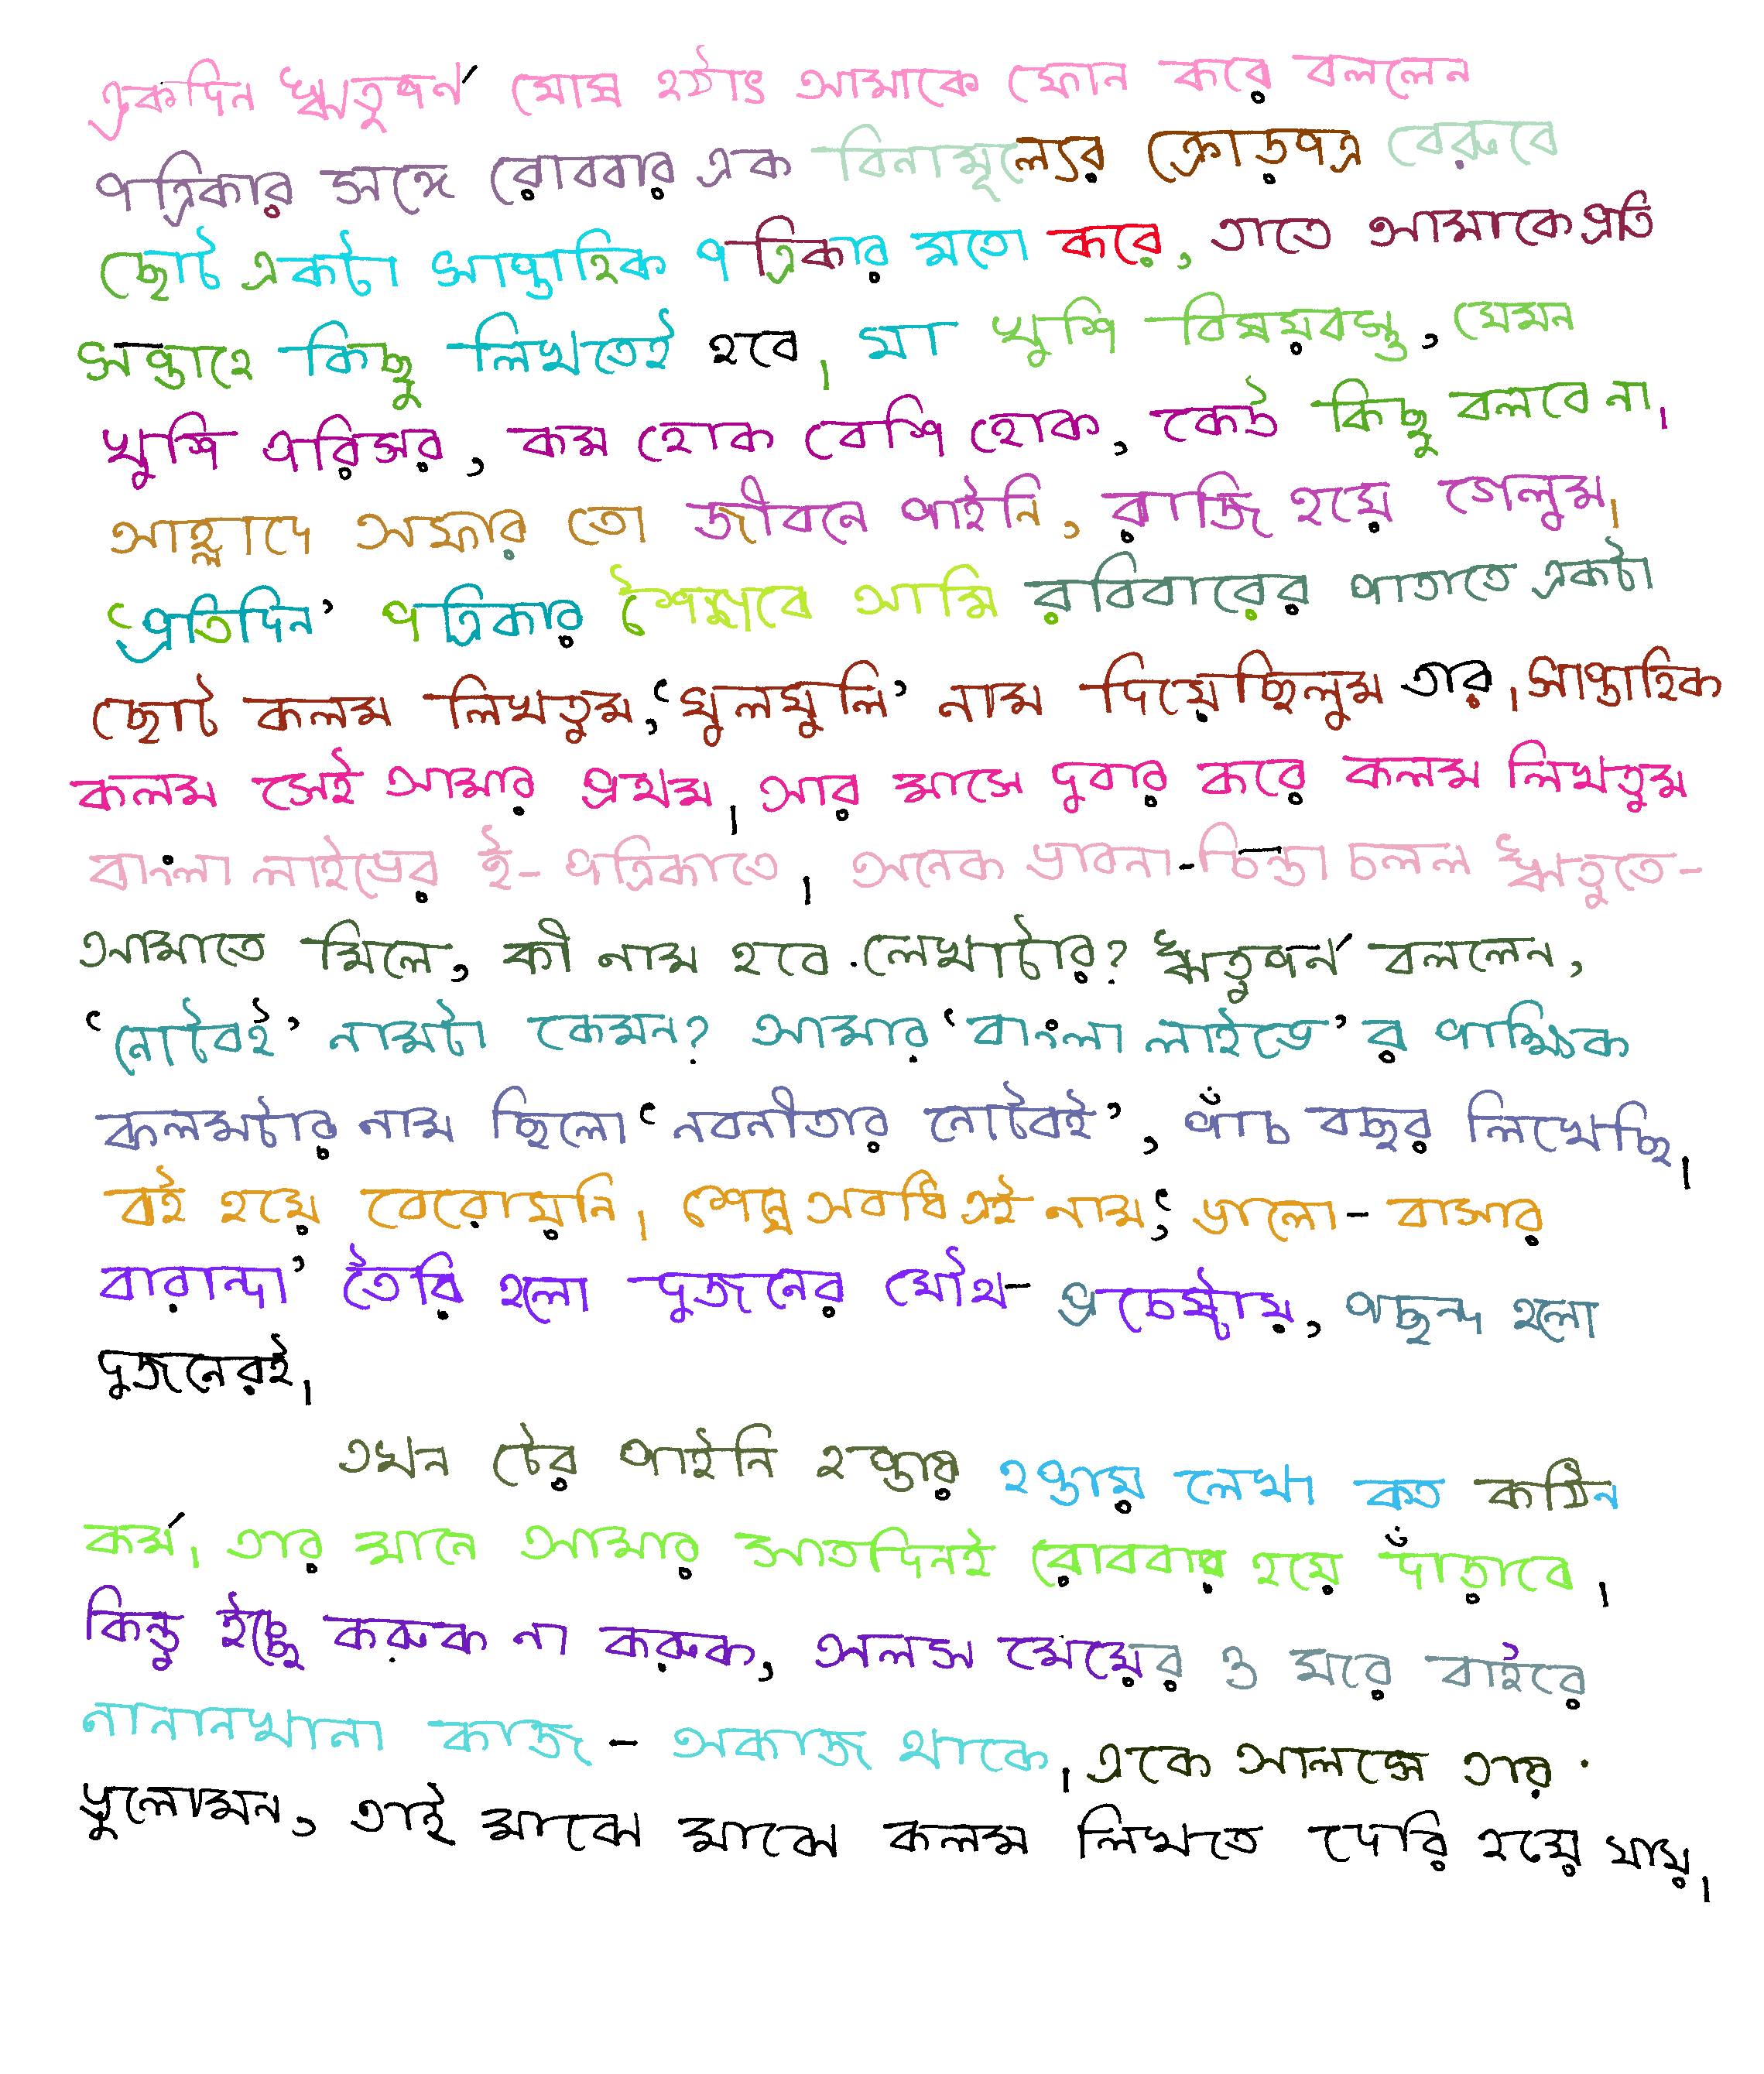 একদিন ঋতুপর্ণ ঘোষ হঠাৎ আমাকে ফোন করে বললেন
পত্রিকার সঙ্গে রোববার এক বিনামূল্যের ক্রোড়পত্র বেরুবে
ছোট একটা সাপ্তাহিক পত্রিকার মতো করে, তাতে আমাকে প্রতি
সপ্তাহে কিছু লিখতেই হবে। যা খুশি বিষয়বস্তু, যেমন
খুশি পরিসর, কম হোক বেশি হোক, কেউ কিছু বলবে না।
আহ্লাদে অফার তো জীবনে পাইনি, রাজি হয়ে গেলুম।
'প্রতিদিন' পত্রিকার শৈশবে আমি রবিবারের পাতাতে একটা
ছোট কলম লিখতুম, 'ঘুলঘুলি' নাম দিয়েছিলুম তার। সাপ্তাহিক
কলম সেই আমার প্রথম। আর মাসে দুবার করে কলম লিখতুম
বাংলা লাইভের ই-পত্রিকাতে। অনেক ভাবনা-চিন্তা চলল ঋতুতে-
আমাতে মিলে, কী নাম হবে লেখাটার? ঋতুপর্ণ বললেন,
'নোটবই' নামটা কেমন? আমার 'বাংলা লাইভে'র পাক্ষিক
কলমটার নাম ছিলো 'নবনীতার নোটবই', পাঁচ বছর লিখেছি।
বই হয়ে বেরোয়নি। শেষ অবধি এই নাম, 'ভালো-বাসার
বারান্দা' তৈরি হলো দুজনের যৌথ-প্রচেষ্টায়, পছন্দ হলো
দুজনেরই।
তখন টের পাইনি হপ্তায় হপ্তায় লেখা কত কঠিন
কর্ম। তার মানে আমার সাতদিনই রোববার হয়ে দাঁড়াবে।
কিন্তু ইচ্ছে করুক না করুক, অলস মেয়ের ও ঘরে বাইরে
নানানখানা কাজ-অকাজ থাকে। একে আলসে তায়
ভুলোমন, তাই মাঝে মাঝে কলম লিখতে দেরি হয়ে যায়।